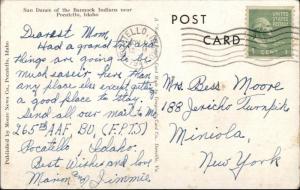 Sun Dance of the Bannock Indians near
Pocatello, Idaho
POST CARD
Dearest Mom,
Had a grand trip and
things are going to be
much easier here than
any place else except getting
a good place to stay.
Send all our mail to Mo
265th AAF, BU, (F.P.T.S)
Pocatello Idaho.
Best Wishes and love
Jimmie
Mrs Bess Moore
188 Jericho Turnpike
Mineola
New York
Published by Moore News Co., Pocatello, Idaho